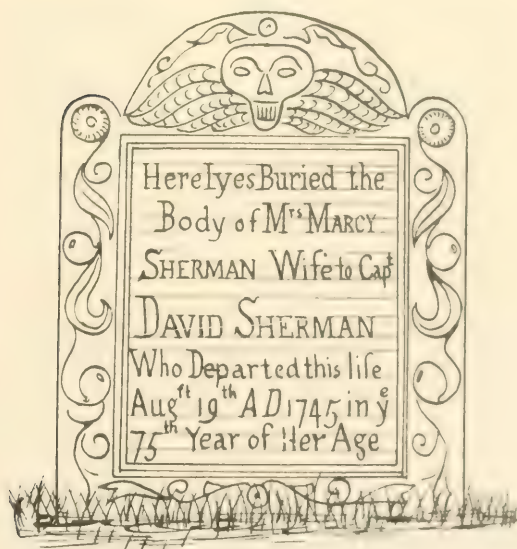 Here lyes Buried the
Body of Mrs MARCY
SHERMAN Wife to Capt
DAVID SHERMAN
Who Departed this life
Augft 19th AD 1745 in ye
75th Year of Her Age